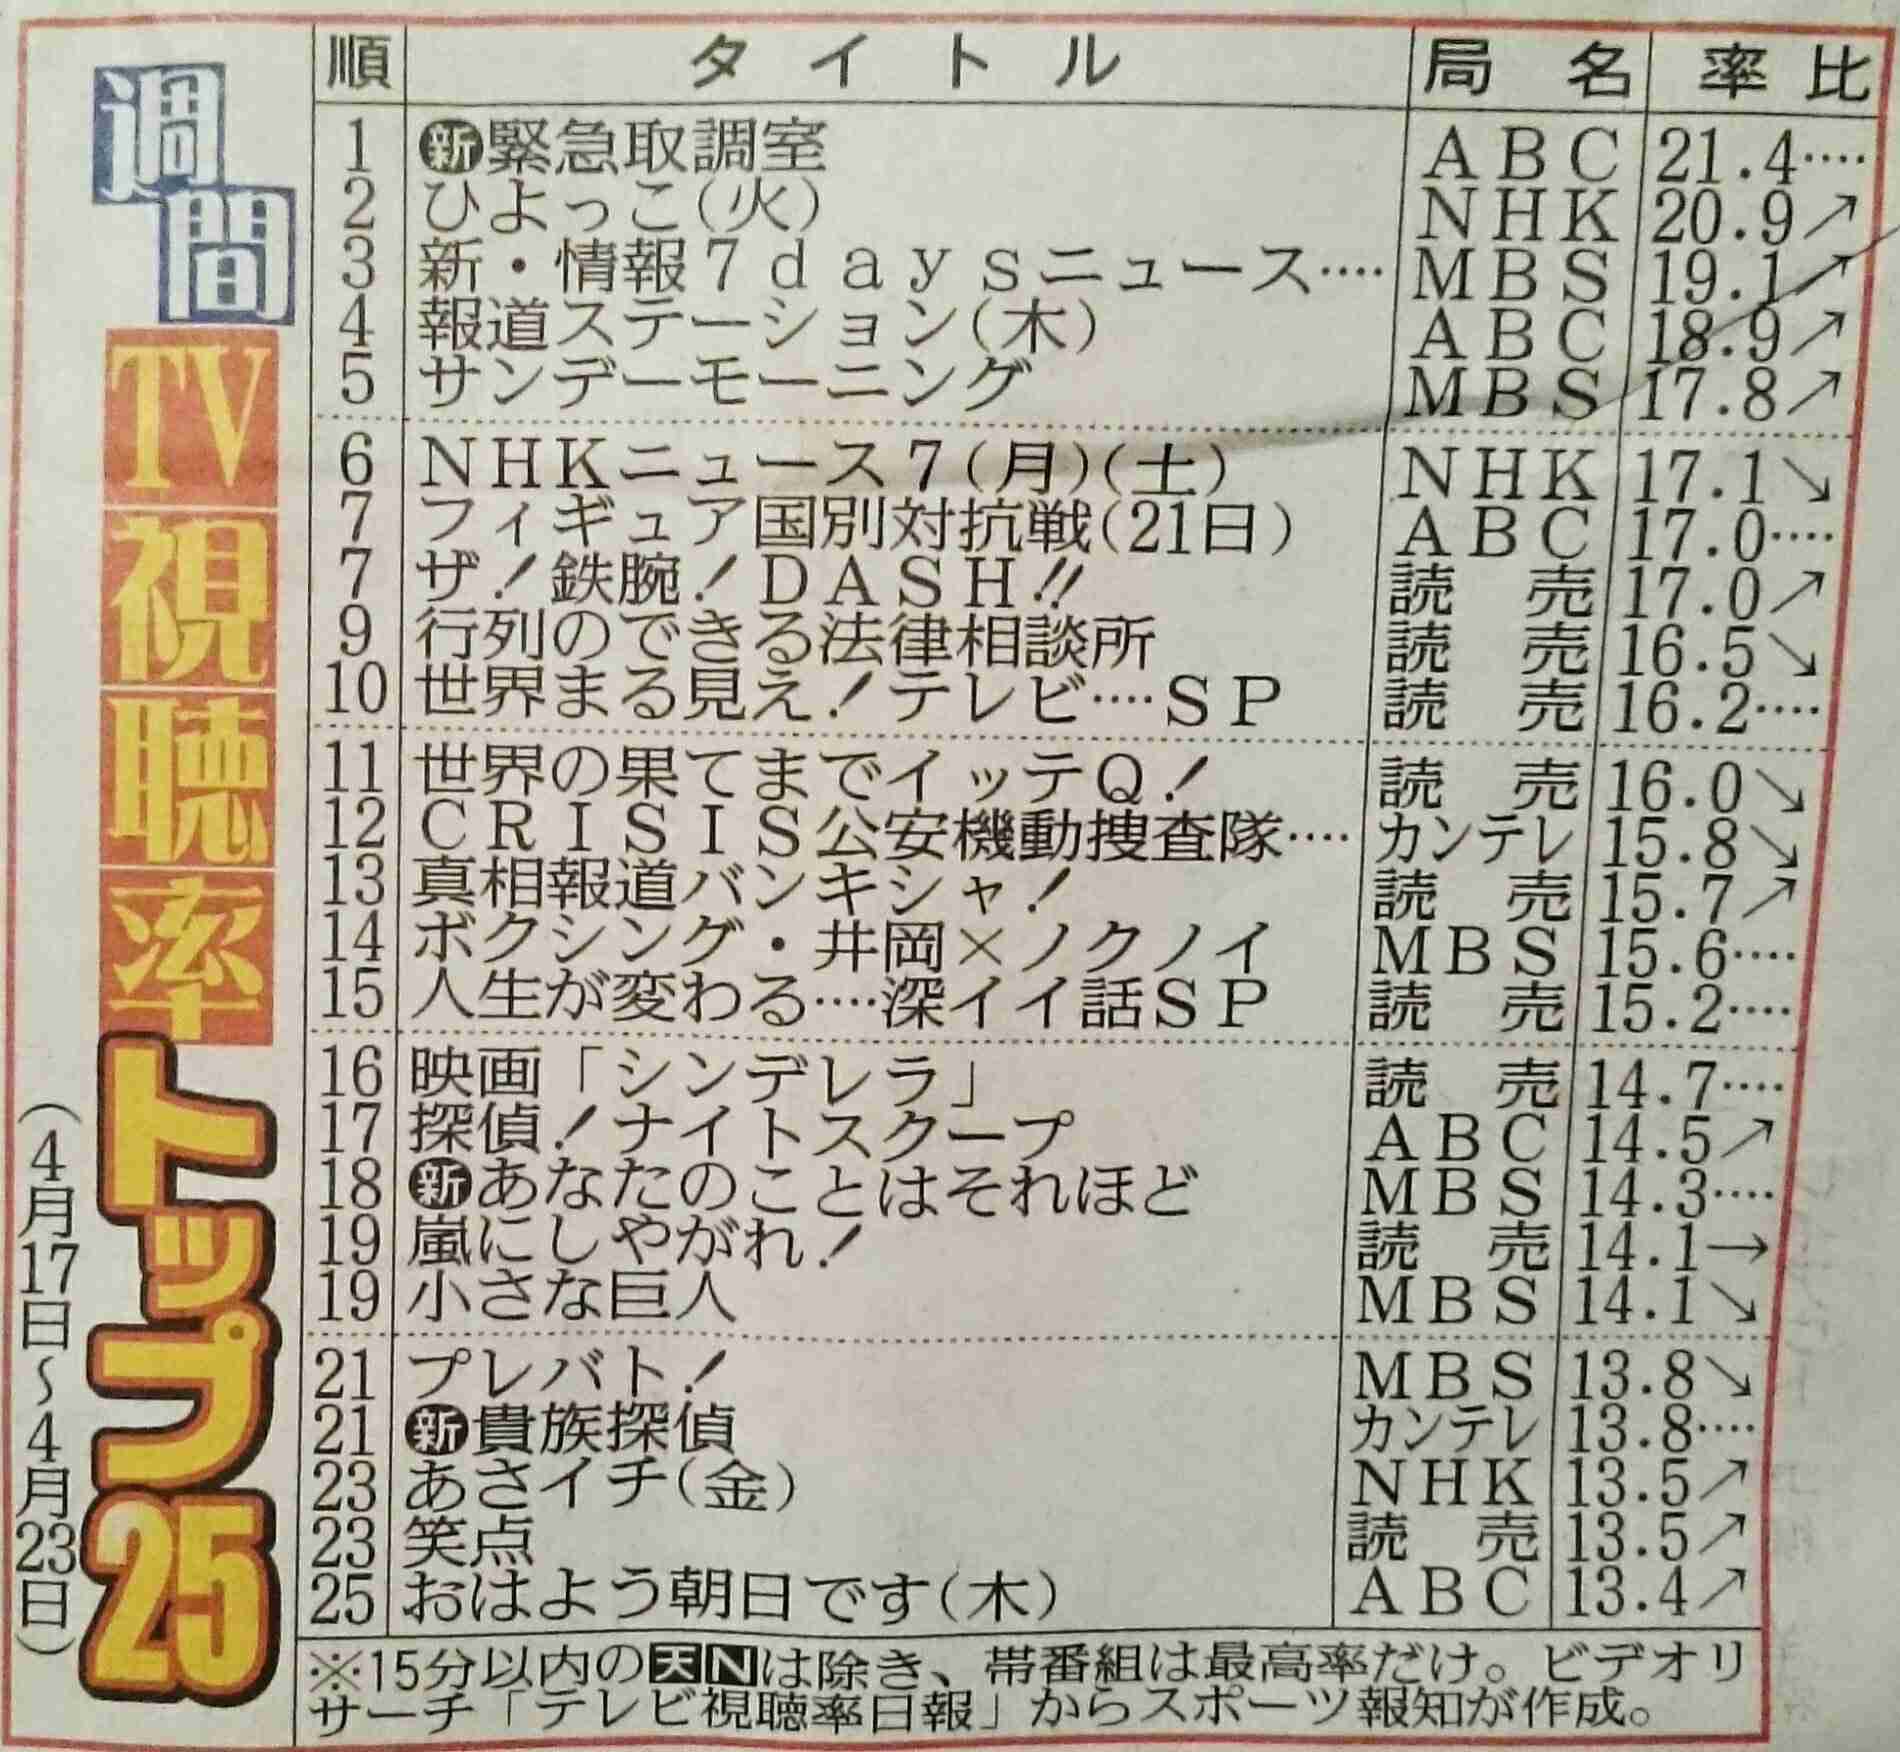 週間TV視聴率トップ25
(4月17日~4月23日)
順 タイトル 局名 率 比
1 新 緊急取調室 ABC 21.4‥‥
2 ひよっこ(火) NHK 20.9↗
3 新・情報7daysニュース‥‥ MBS 19.1↗
4 報道ステーション(木) ABC 18.9↗
5 サンデーモーニング MBS 17.8↗
6 NHKニュース7(月)(土) NHK 17.1↘
7 フィギュア国別対抗戦(21日) ABC 17.0‥‥
7 ザ!鉄腕!DASH!! 読売 17.0↗
9 行列のできる法律相談所 読売 16.5↘
10 世界まる見え!テレビ‥‥SP 読売 16.2‥‥
11 世界の果てまでイッテQ! 読売 16.0↘
12 CRISIS公安機動捜査隊‥‥ カンテレ 15.8↘
13 真相報道バンキシャ! 読売 15.7↗
14 ボクシング・井岡×ノクノイ MBS 15.6‥‥
15 人生が変わる‥‥深イイ話SP 読売 15.2‥‥
16 映画「シンデレラ」 読売 14.7‥‥
17 探偵!ナイトスクープ ABC 14.5↗
18 新 あなたのことはそれほど MBS 14.3‥‥
19 嵐にしやがれ! 読売 14.1→
19 小さな巨人 MBS 14.1↘
21 プレバト! MBS 13.8↘
21 新 貴族探偵 カンテレ 13.8‥‥
23 あさイチ(金) NHK 13.5↗
23 笑点 読売 13.5↗
25 おはよう朝日です(木) ABC 13.4↗
※15分以内の天Nは除き、帯番組は最高率だけ。ビデオリ
サーチ「テレビ視聴率日報」からスポーツ報知が作成。